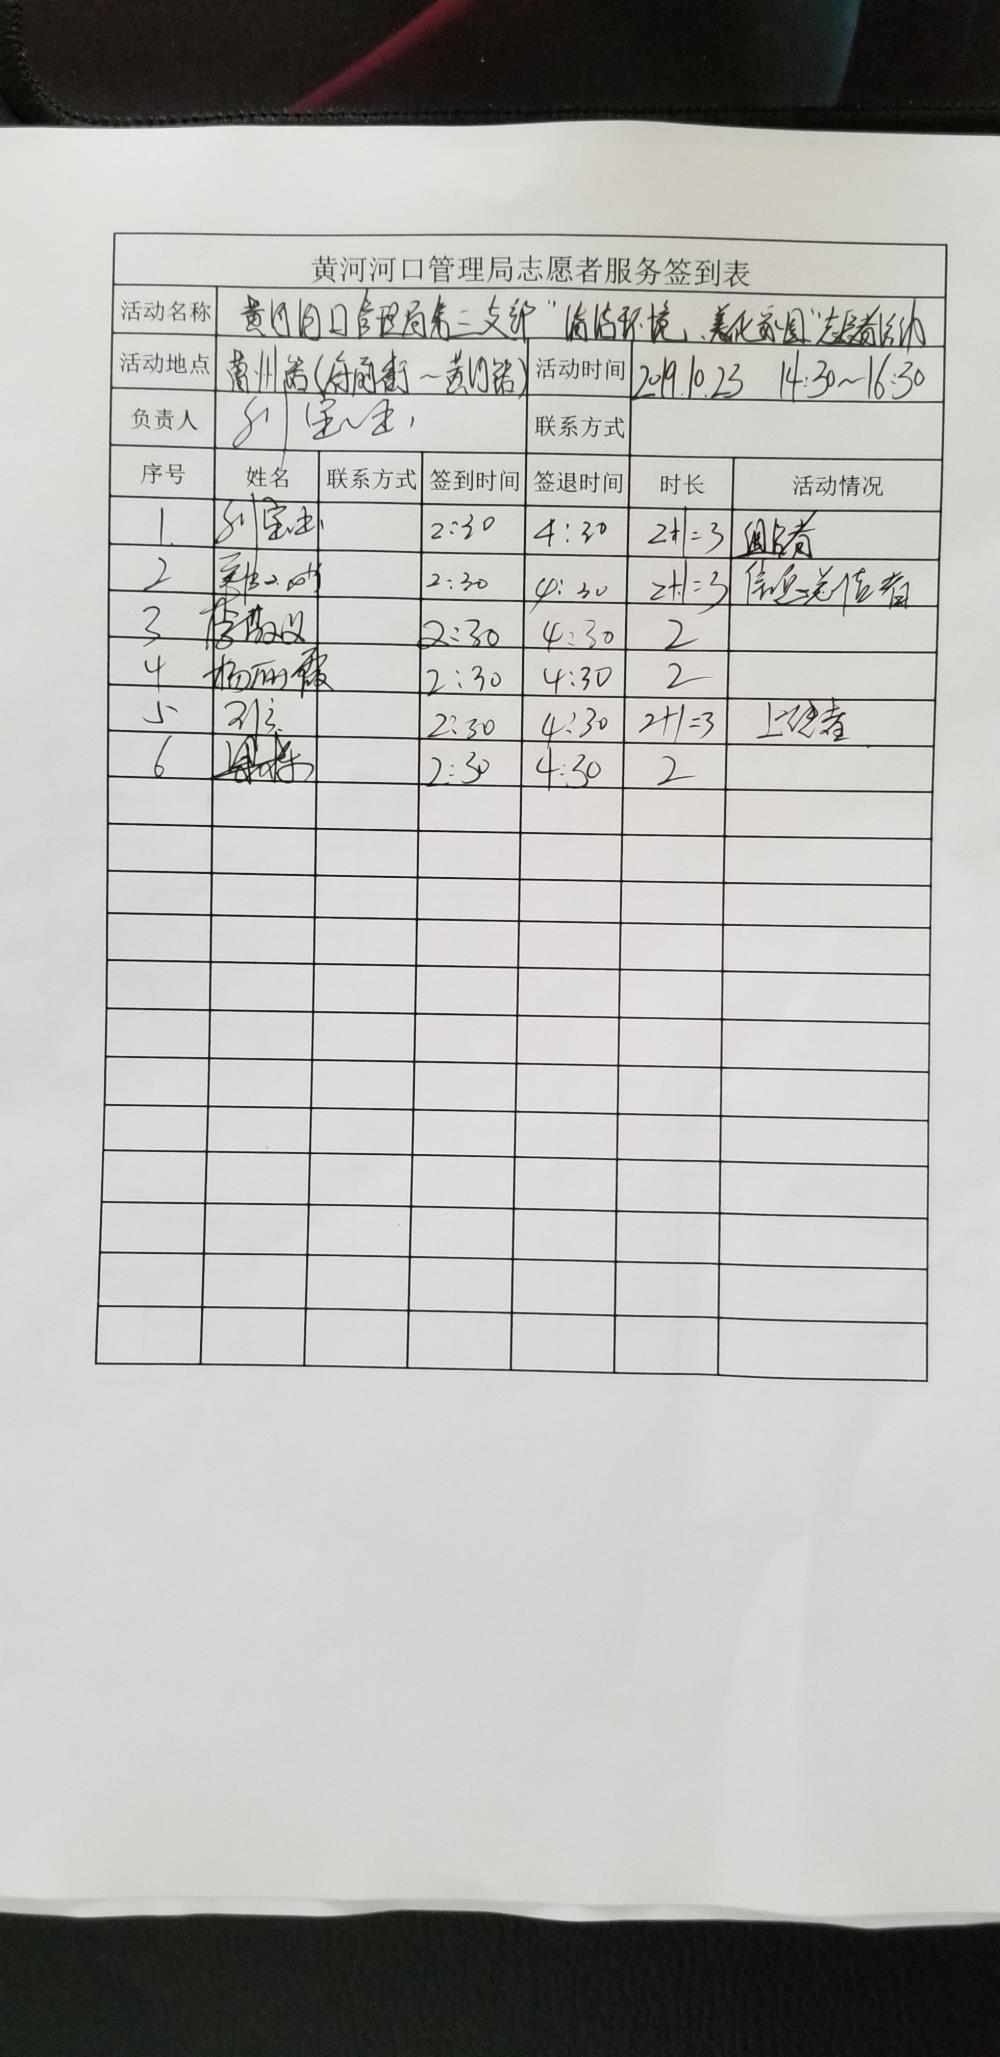 黄河河口管理局志愿者服务签到表
活动名称 黄河河口管理局第三支部"清洁环境、美化家园"志愿者活动
活动地点 (府前街~黄河路) 活动时间 2019.10.23 14:30~16:30
负责人 联系方式
序号 姓名 联系方式 签到时间 签退时间 时长 活动情况
1. 2:30 4:30 2+1=3 组织者
2 2:30 4:30 2+1=3
3 2:30 4:30 2
4 杨丽霞 2:30 4:30 2
5 2:30 4:30 2+1=3
6 2:30 4:30 2